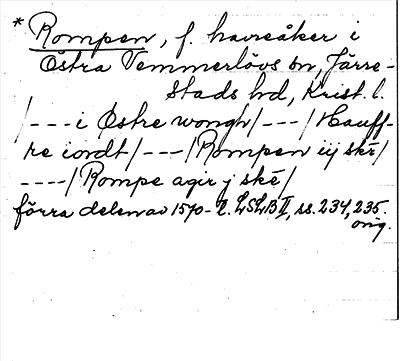 * Rompen, f. havreåker i
Östra Vemmerlövs sn, Järre-
stads hd, Krist. l.
/---i Østre wongh/---/Hauff-
re iordt/---/Rompen iij ske/
----/Rompe agir j ske/
förra delen av 1570-t. LSLB II, ss. 234, 235.
orig.